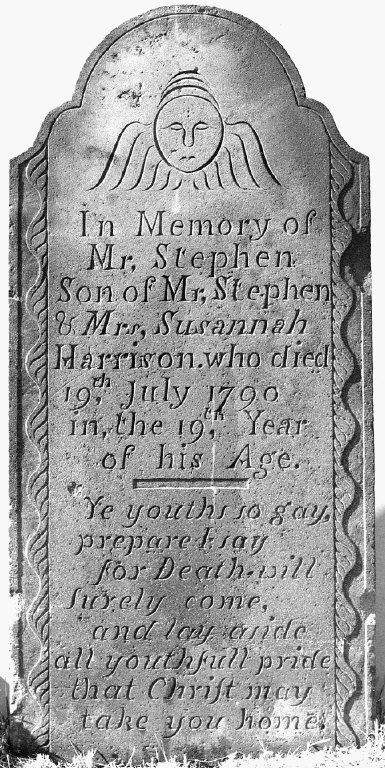 In Memory of
Mr. Stephen
Son of Mr. Stephen
& Mrs, Susannah
Harrison. who died
19,th July 1790
in, the 19,th Year
of his Age.
Ye youths so gay,
prepare I say
for Death will
ſurely come,
and lay aside
all youthfull pride
that Chriſt may
take you home.